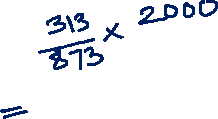 313/873 × 2000
=